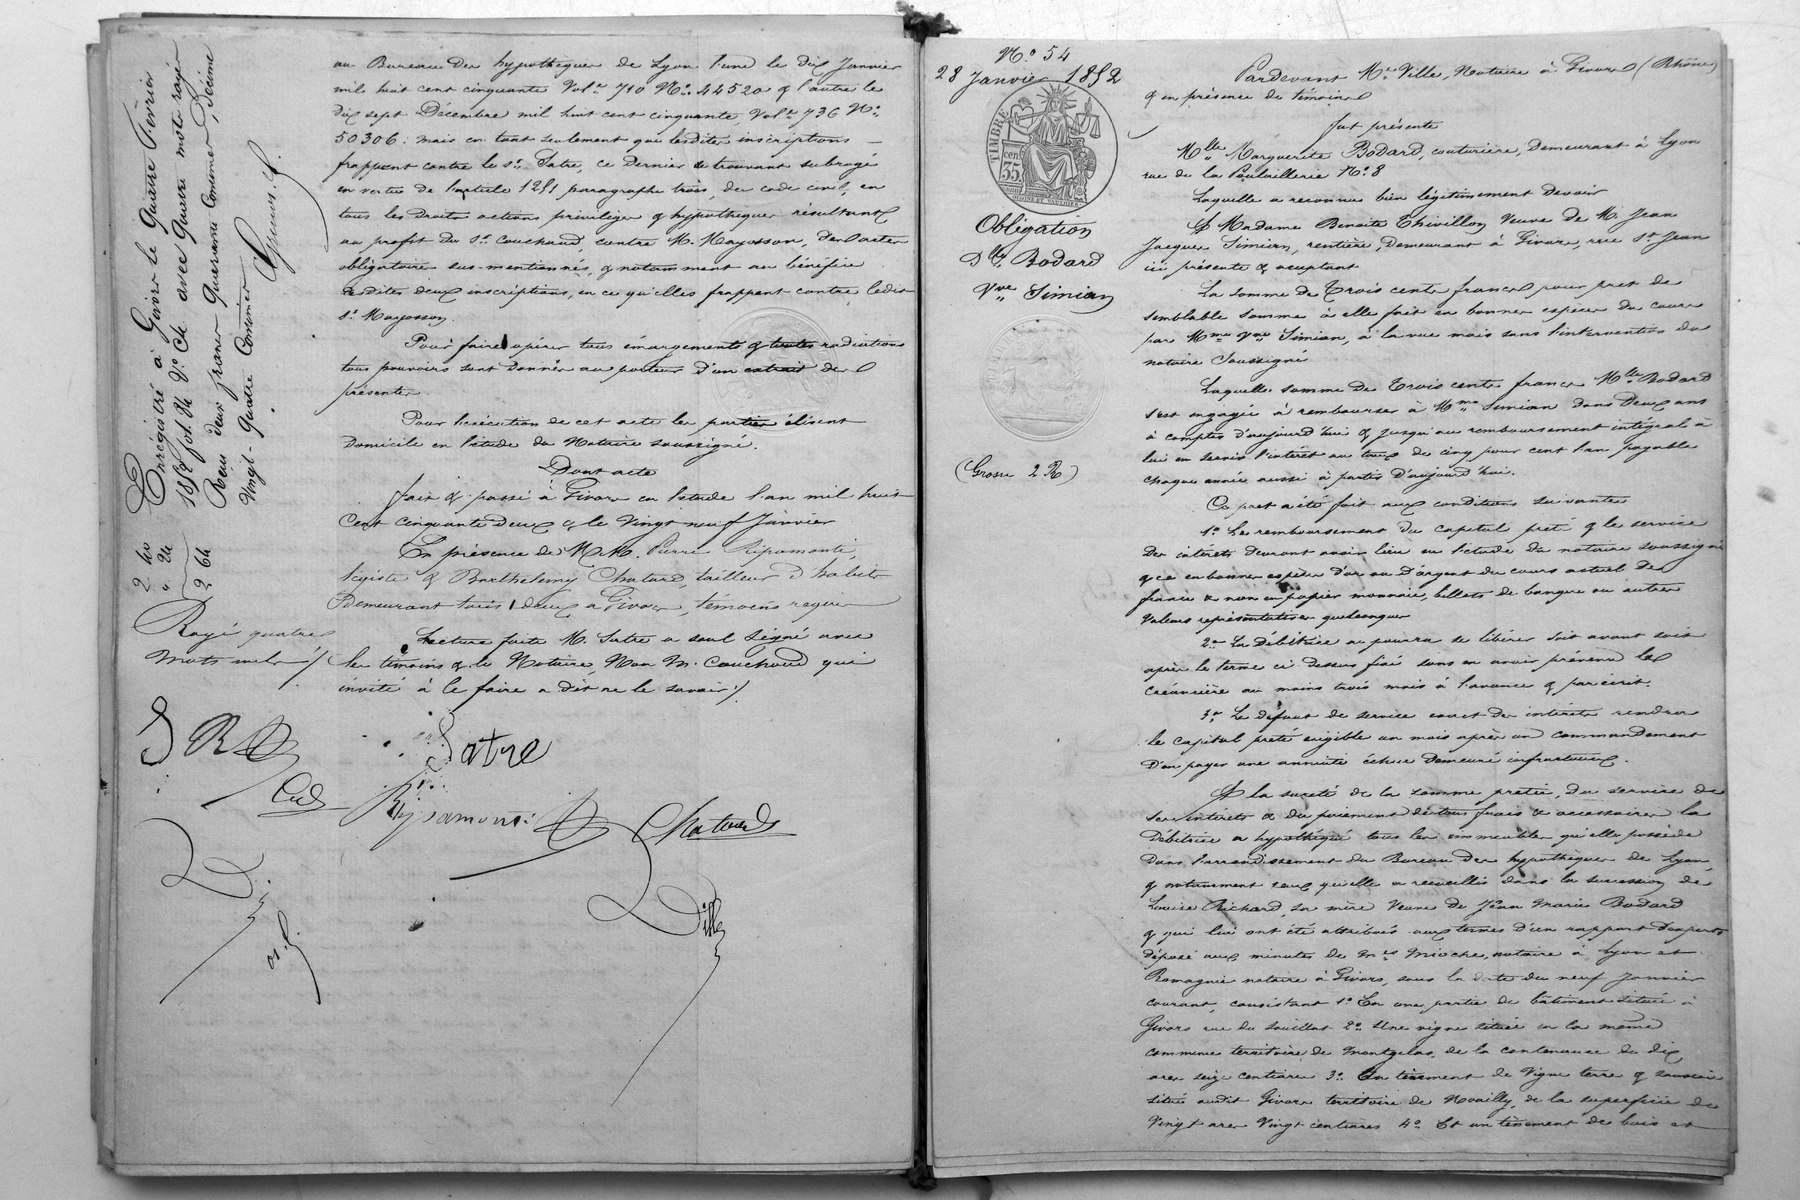 au Bureau des hypothèques de Lyon l'une le dix Janvier
mil huit cent cinquante Vol.e 710 N.o 44520 & l'autre le
dix sept Décembre mil huit cent cinquante, Vol.e 736 N.o
50306; mais en tant seulement que lesdites inscriptions
frappent contre le s.r Satre, ce dernier se trouvant subrogé
en vertu de l'article 1251 paragraphe trois, du code civil, en
tous les droits actions privilèges & hypothèques résultant
au profit du s.r Couchoud, contre M. Mayosson, des actes
obligatoires sus-mentionnés, & notamment au bénéfice
desdites deux inscriptions, en ce qu'elles frappent contre ledit
s.r Mayosson.
Pour faire opérer tous émargements & toutes radiations
tous pouvoirs sont donnés au porteur d'un extrait des
présentes.
Pour l'exécution de cet acte les parties élisent
domicile en l'étude du Notaire soussigné.
Dont acte
fait & passé à Givors en l'étude l'an mil huit
cent cinquante deux & le vingt neuf Janvier
En présence de M.M. Pierre Ripamonti,
légiste & Barthelemy Chatard, tailleur d'habits
demeurant tous deux à Givors, témoins requis
Lecture faite M. Satre a seul signé avec
les témoins & le Notaire, Non M. Couchoud qui
invité à le faire a dit ne le savoir ./.
Enrégistré à Givors le quatre Février
1852 fol. 84 V.o C.4 avec quatre mots rayés
Reçu deux francs quarante centimes, Décime
vingt-quatre centimes
2 40
" 24
2 64
Rayé quatre
mots nuls ./.
S R
Satre
Ripamonti
Chatard
Ville
N.o 54
28 Janvier 1852
TIMBRE
35
cen.
Obligation
D.lle Bodard
V.ve Simian
(Grosse 2 R)
Pardevant M.e Ville, Notaire à Givors (Rhône)
& en présence de témoins
fut présente
M.lle Marguerite Bodard, couturière, demeurant à Lyon
rue de la Poulaillerie N.o 8
Laquelle a reconnu bien légitimement devoir
A Madame Benoite Thivillon veuve de M. Jean
Jacques Simian, rentière, demeurant à Givors, rue S.t Jean
ici présente & acceptant
La somme de Trois cents francs pour prêt de
semblable somme à elle fait en bonnes espèces du cours
par M.me V.ve Simian, à la vue mais sans l'intervention du
notaire soussigné
Laquelle somme de Trois cents francs M.lle Bodard
s'est engagée à rembourser à M.me Simian dans deux ans
à compter d'aujourd'hui & jusqu'au remboursement intégral à
lui en servir l'intérêt au taux de cinq pour cent l'an payable
chaque année aussi à partir d'aujourd'hui.
Ce prêt a été fait aux conditions suivantes
1.o Le remboursement du capital prêté & le service
des intérêts devront avoir lieu en l'étude du notaire soussigné
& ce en bonnes espèces d'or ou d'argent du cours actuel de
france & non en papier monnaie, billets de banque ou autres
valeurs représentatives quelconques
2.o La Débitrice ne pourra se libérer soit avant soit
après le terme ci dessus fixé sans en avoir prévenu la
créancière au moins trois mois à l'avance & par écrit.
3.o Le défaut de service exact des intérêts rendra
le capital prêté exigible un mois après un commandement
d'en payer une annuité échue demeuré infructueux.
A la sureté de la somme prêtée, du service de
ses intérêts & du paiement de tous frais & accessoires la
Débitrice a hypothéqué tous les immeubles qu'elle possède
dans l'arrondissement du Bureau des hypothèques de Lyon,
& notamment ceux qu'elle a recueillis dans la succession de
Louise Richard, sa mère Veuve de Jean Marie Bodard
& qui lui ont été attribués aux termes d'un rapport d'experts
déposé aux minutes de M.es Mioche, notaire à Lyon et
Romagnie notaire à Givors, sous la date du neuf Janvier
courant, consistant 1.o En une partie de bâtiment située à
Givors rue du Souillat 2.o Une vigne située en la même
commune territoire de Montgelas, de la contenance de dix
ares seize centiares 3.o En tènement de vigne terre &
situé audit Givors territoire de Novilly, de la superficie de
vingt ares vingt centiares 4.o Et un tènement de bois et